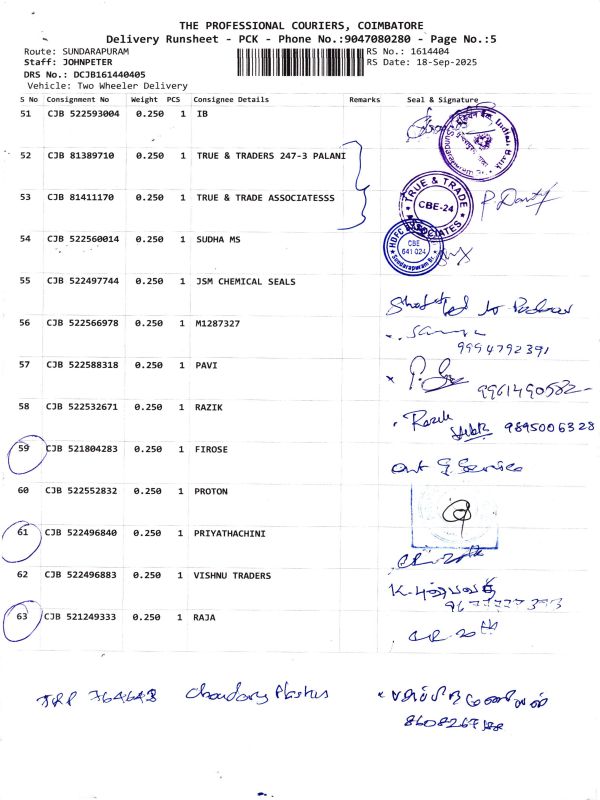 THE PROFESSIONAL COURIERS, COIMBATORE
Delivery Runsheet - PCK - Phone No.:9047080280 - Page No.:5
Route: SUNDARAPURAM RS No.: 1614404
Staff: JOHNPETER RS Date: 18-Sep-2025
DRS No.: DCJB161440405
Vehicle: Two Wheeler Delivery
S No Consignment No Weight PCS Consignee Details Remarks Seal & Signature
51 CJB 522593004 0.250 1 IB
Indian Bank
52 CJB 81389710 0.250 1 TRUE & TRADERS 247-3 PALANI
53 CJB 81411170 0.250 1 TRUE & TRADE ASSOCIATESSS
TRUE & TRADE ASSOCIATES
CBE-24
54 CJB 522560014 0.250 1 SUDHA MS
HDFC
CBE
641 024
Sundarapuram Br.
55 CJB 522497744 0.250 1 JSM CHEMICAL SEALS
56 CJB 522566978 0.250 1 M1287327
9994792391
57 CJB 522588318 0.250 1 PAVI
9961490582
58 CJB 522532671 0.250 1 RAZIK
Razik
9895006328
59 CJB 521804283 0.250 1 FIROSE
60 CJB 522552832 0.250 1 PROTON
61 CJB 522496840 0.250 1 PRIYATHACHINI
62 CJB 522496883 0.250 1 VISHNU TRADERS
63 CJB 521249333 0.250 1 RAJA
764648 Choudary Plastics